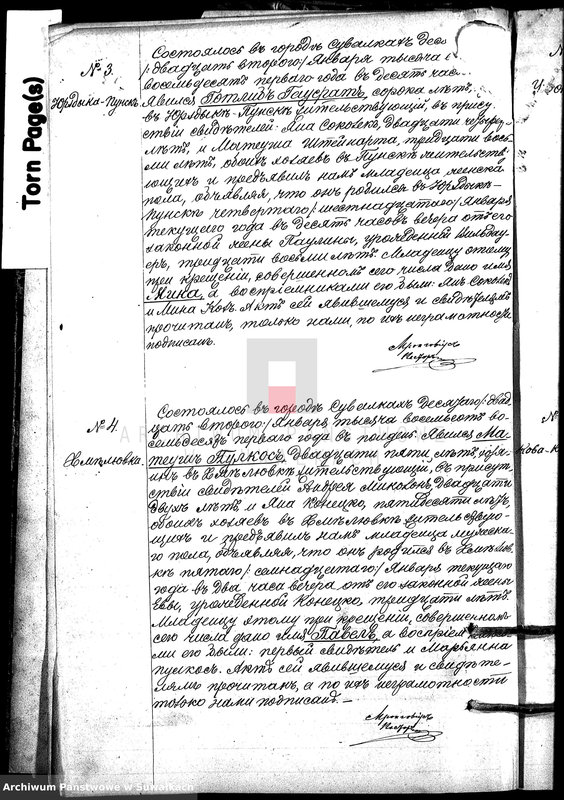 Torn Page(s)
№ 3.
Юрздыка-Пунскъ
Состоялось въ городѣ Сувалкахъ Деся
/:двадцать второго:/ Января тысяча
восемьдесятъ перваго года въ десять час
Явился Готлибъ Паускатъ, сорока лѣтъ,
въ Юрздыкѣ-Пунскѣ жительствующій, въ прису-
ствіи свидѣтелей: Яна Соколокъ, двадцати четырехъ
лѣтъ, и Матеуша Штейнарта, тридцати вось-
ми лѣтъ, обоихъ хозяевъ въ Пунскѣ жительств-
ующихъ и предъявилъ намъ младенца женска
пола, объявляя, что онъ родился въ Юрздыкѣ-
Пунскѣ четвертаго /:шестнадцатаго:/ Января
текущаго года въ десять часовъ вечера отъ его
законной жены Паулины, урожденной
еръ, тридцати восьми лѣтъ. Младенцу этому
при крещеніи, совершенномъ сего числа дано имя
Мина, а воспріемниками его были: Янъ Соколокъ
и Мина Кохъ. Актъ сей явившемуся и свидѣтелямъ
прочитанъ, только нами, по ихъ неграмотности
подписанъ.
№ 4.
Хмѣлювка.
Состоялось въ городѣ Сувалкахъ Десятаго /:двад-
цать второго:/ Января тысяча восемьсотъ во-
семьдесятъ перваго года въ полдень. Явился Ма-
теушъ Пулкосъ, двадцати пяти лѣтъ,
въ Хмѣлювкѣ жительствующій, въ присут-
ствіи свидѣтелей Андрея Миколокъ, двадцати
двухъ лѣтъ и Яна Конецко, пятидесяти лѣтъ,
обоихъ хозяевъ въ Хмѣлювкѣ жительствую-
щихъ и предъявилъ намъ младенца мужеска-
го пола, объявляя, что онъ родился въ Хмѣлюв-
кѣ пятаго /:семнадцатаго:/ Января текущаго
года въ два часа вечера отъ его законной жены
Евы, урожденной Конецко, тридцати лѣтъ.
Младенцу этому при крещеніи, совершенномъ
сего числа дано имя Павелъ, а воспріемника-
ми его были: первый свидѣтель и Марьянна
Пулкосъ. Актъ сей явившемуся и свидѣте-
лямъ прочитанъ, а по ихъ неграмотности
только нами подписанъ.—
Archiwum Państwowe w Suwałkach